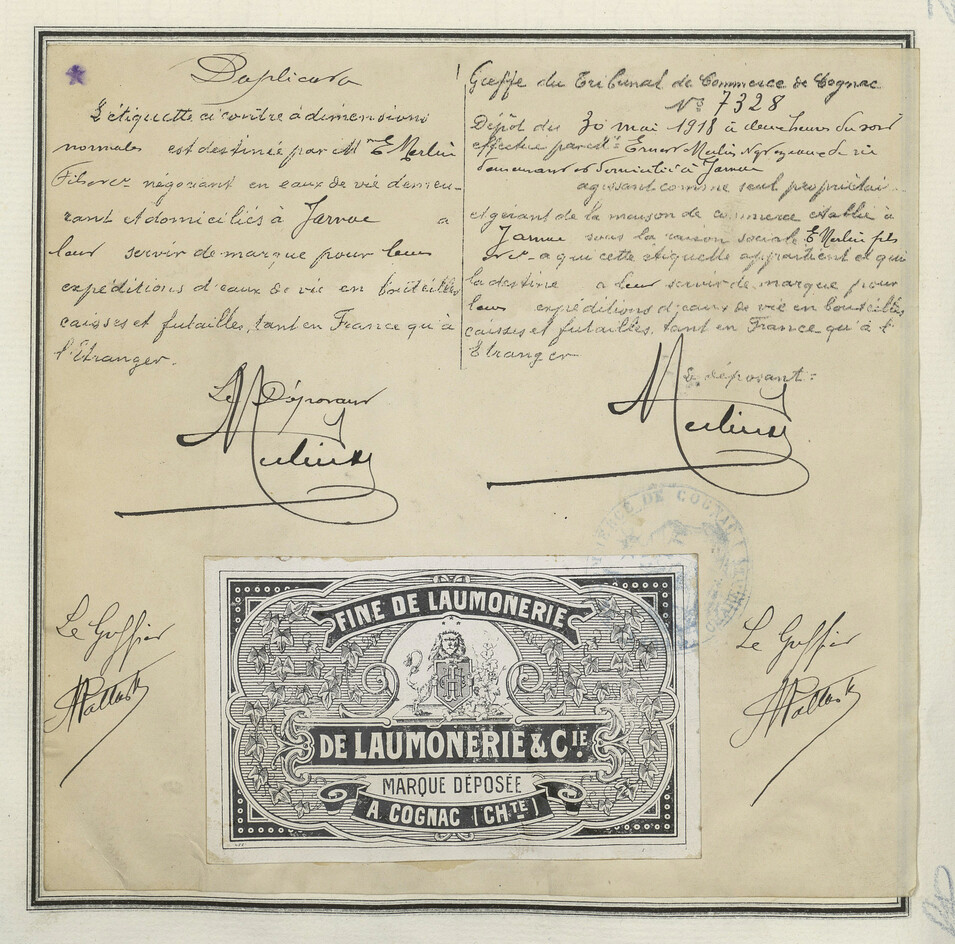 Duplicata
L'étiquette ci contre à dimensions
normales est destinée par Mr E. Merlin
Fils & Cie négociant en eaux de vie demeu-
rant et domiciliés à Jarnac a
leur servir de marque pour leurs
expéditions d'eaux de vie en bouteilles
caisses et futailles, tant en France qu'à
l'Étranger.
Le Déposant
Merlin
Greffe du Tribunal de Commerce de Cognac
No 7328
Dépôt du 30 mai 1918 à deux heures du soir
effectué par Ernest Merlin Ngt eaux de vie
demeurant et domicilié à Jarnac
agissant comme seul propriétai
et gérant de la maison de commerce établie à
Jarnac sous la raison sociale E Merlin fils
& Cie a qui cette étiquette appartient et qui
la destine a leur servir de marque pour
leurs expéditions d'eaux de vie en bouteilles
caisses et futailles, tant en France qu'à l'
Etranger
Le déposant:
Merlin
DE COGNAC
Le Greffier
Le Greffier
FINE DE LAUMONERIE
DE LAUMONERIE & CIE
MARQUE DÉPOSÉE
A COGNAC (CHTE)